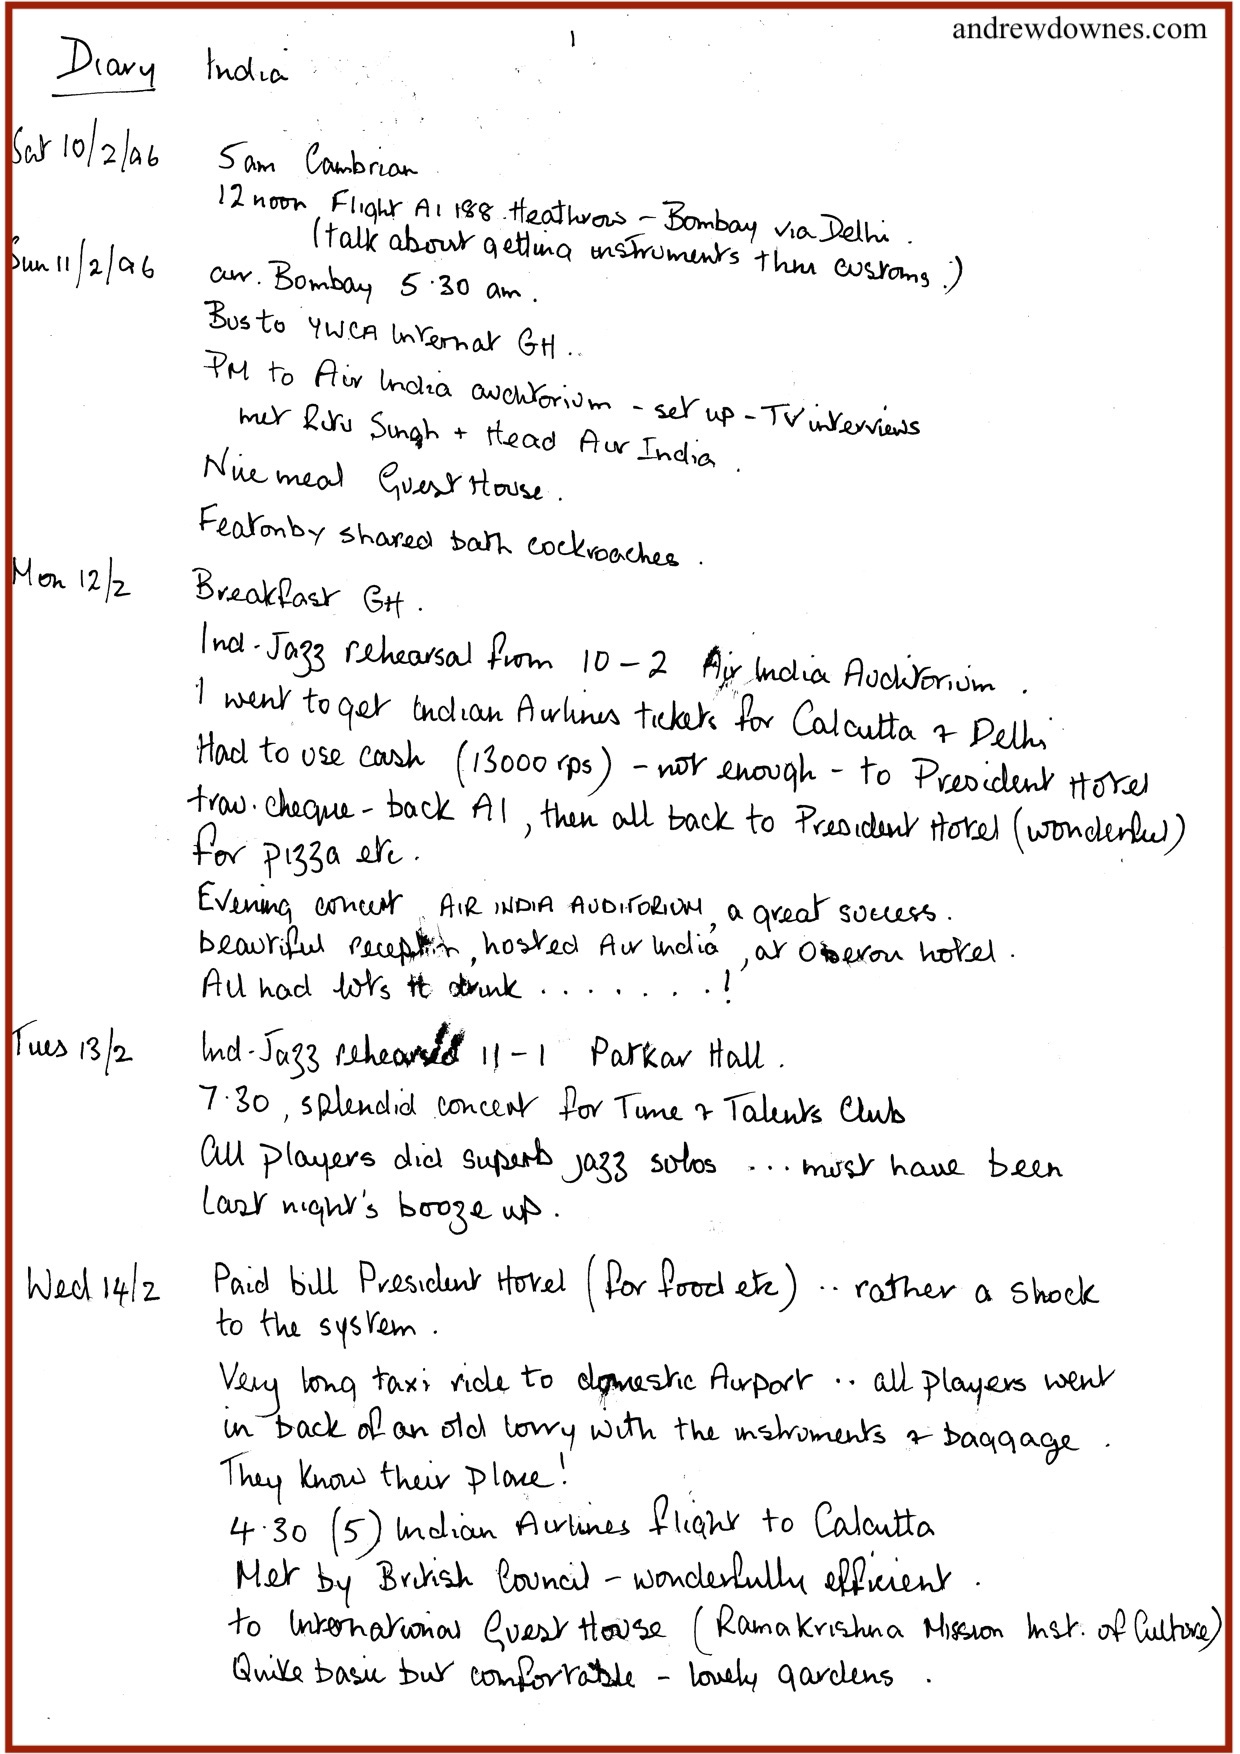 andrewdownes.com
1
Diary India
Sat 10/2/96 5am Cambrian
12 noon Flight AI 188 Heathrow - Bombay via Delhi.
(talk about getting instruments thru customs.)
Sun 11/2/96 arr. Bombay 5.30 am.
Bus to YWCA Internat GH..
PM to Air India auditorium - set up - TV interviews
met Ritu Singh + Head Air India.
Nice meal Guest House.
Featonby shared bath cockroaches.
Mon 12/2 Breakfast GH.
Ind-Jazz rehearsal from 10-2 Air India Auditorium.
I went to get Indian Airlines tickets for Calcutta + Delhi
Had to use cash (13000 rps) - not enough - to President Hotel
trav. cheque - back AI, then all back to President Hotel (wonderful)
for pizza etc.
Evening concert AIR INDIA AUDITORIUM, a great success.
beautiful reception, hosted Air India, at Oberon hotel.
All had lots to drink .......!
Tues 13/2 Ind-Jazz rehearsal 11-1 Patkar Hall.
7.30, splendid concert for Time + Talents Club
All players did superb jazz solos ... must have been
last night's booze up.
Wed 14/2 Paid bill President Hotel (for food etc) .. rather a shock
to the system.
Very long taxi ride to domestic Airport .. all players went
in back of an old lorry with the instruments + baggage.
They know their place!
4.30 (5) Indian Airlines flight to Calcutta
Met by British Council - wonderfully efficient.
to International Guest House (Ramakrishna Mission Inst. of Culture)
Quite basic but comfortable - lovely gardens.